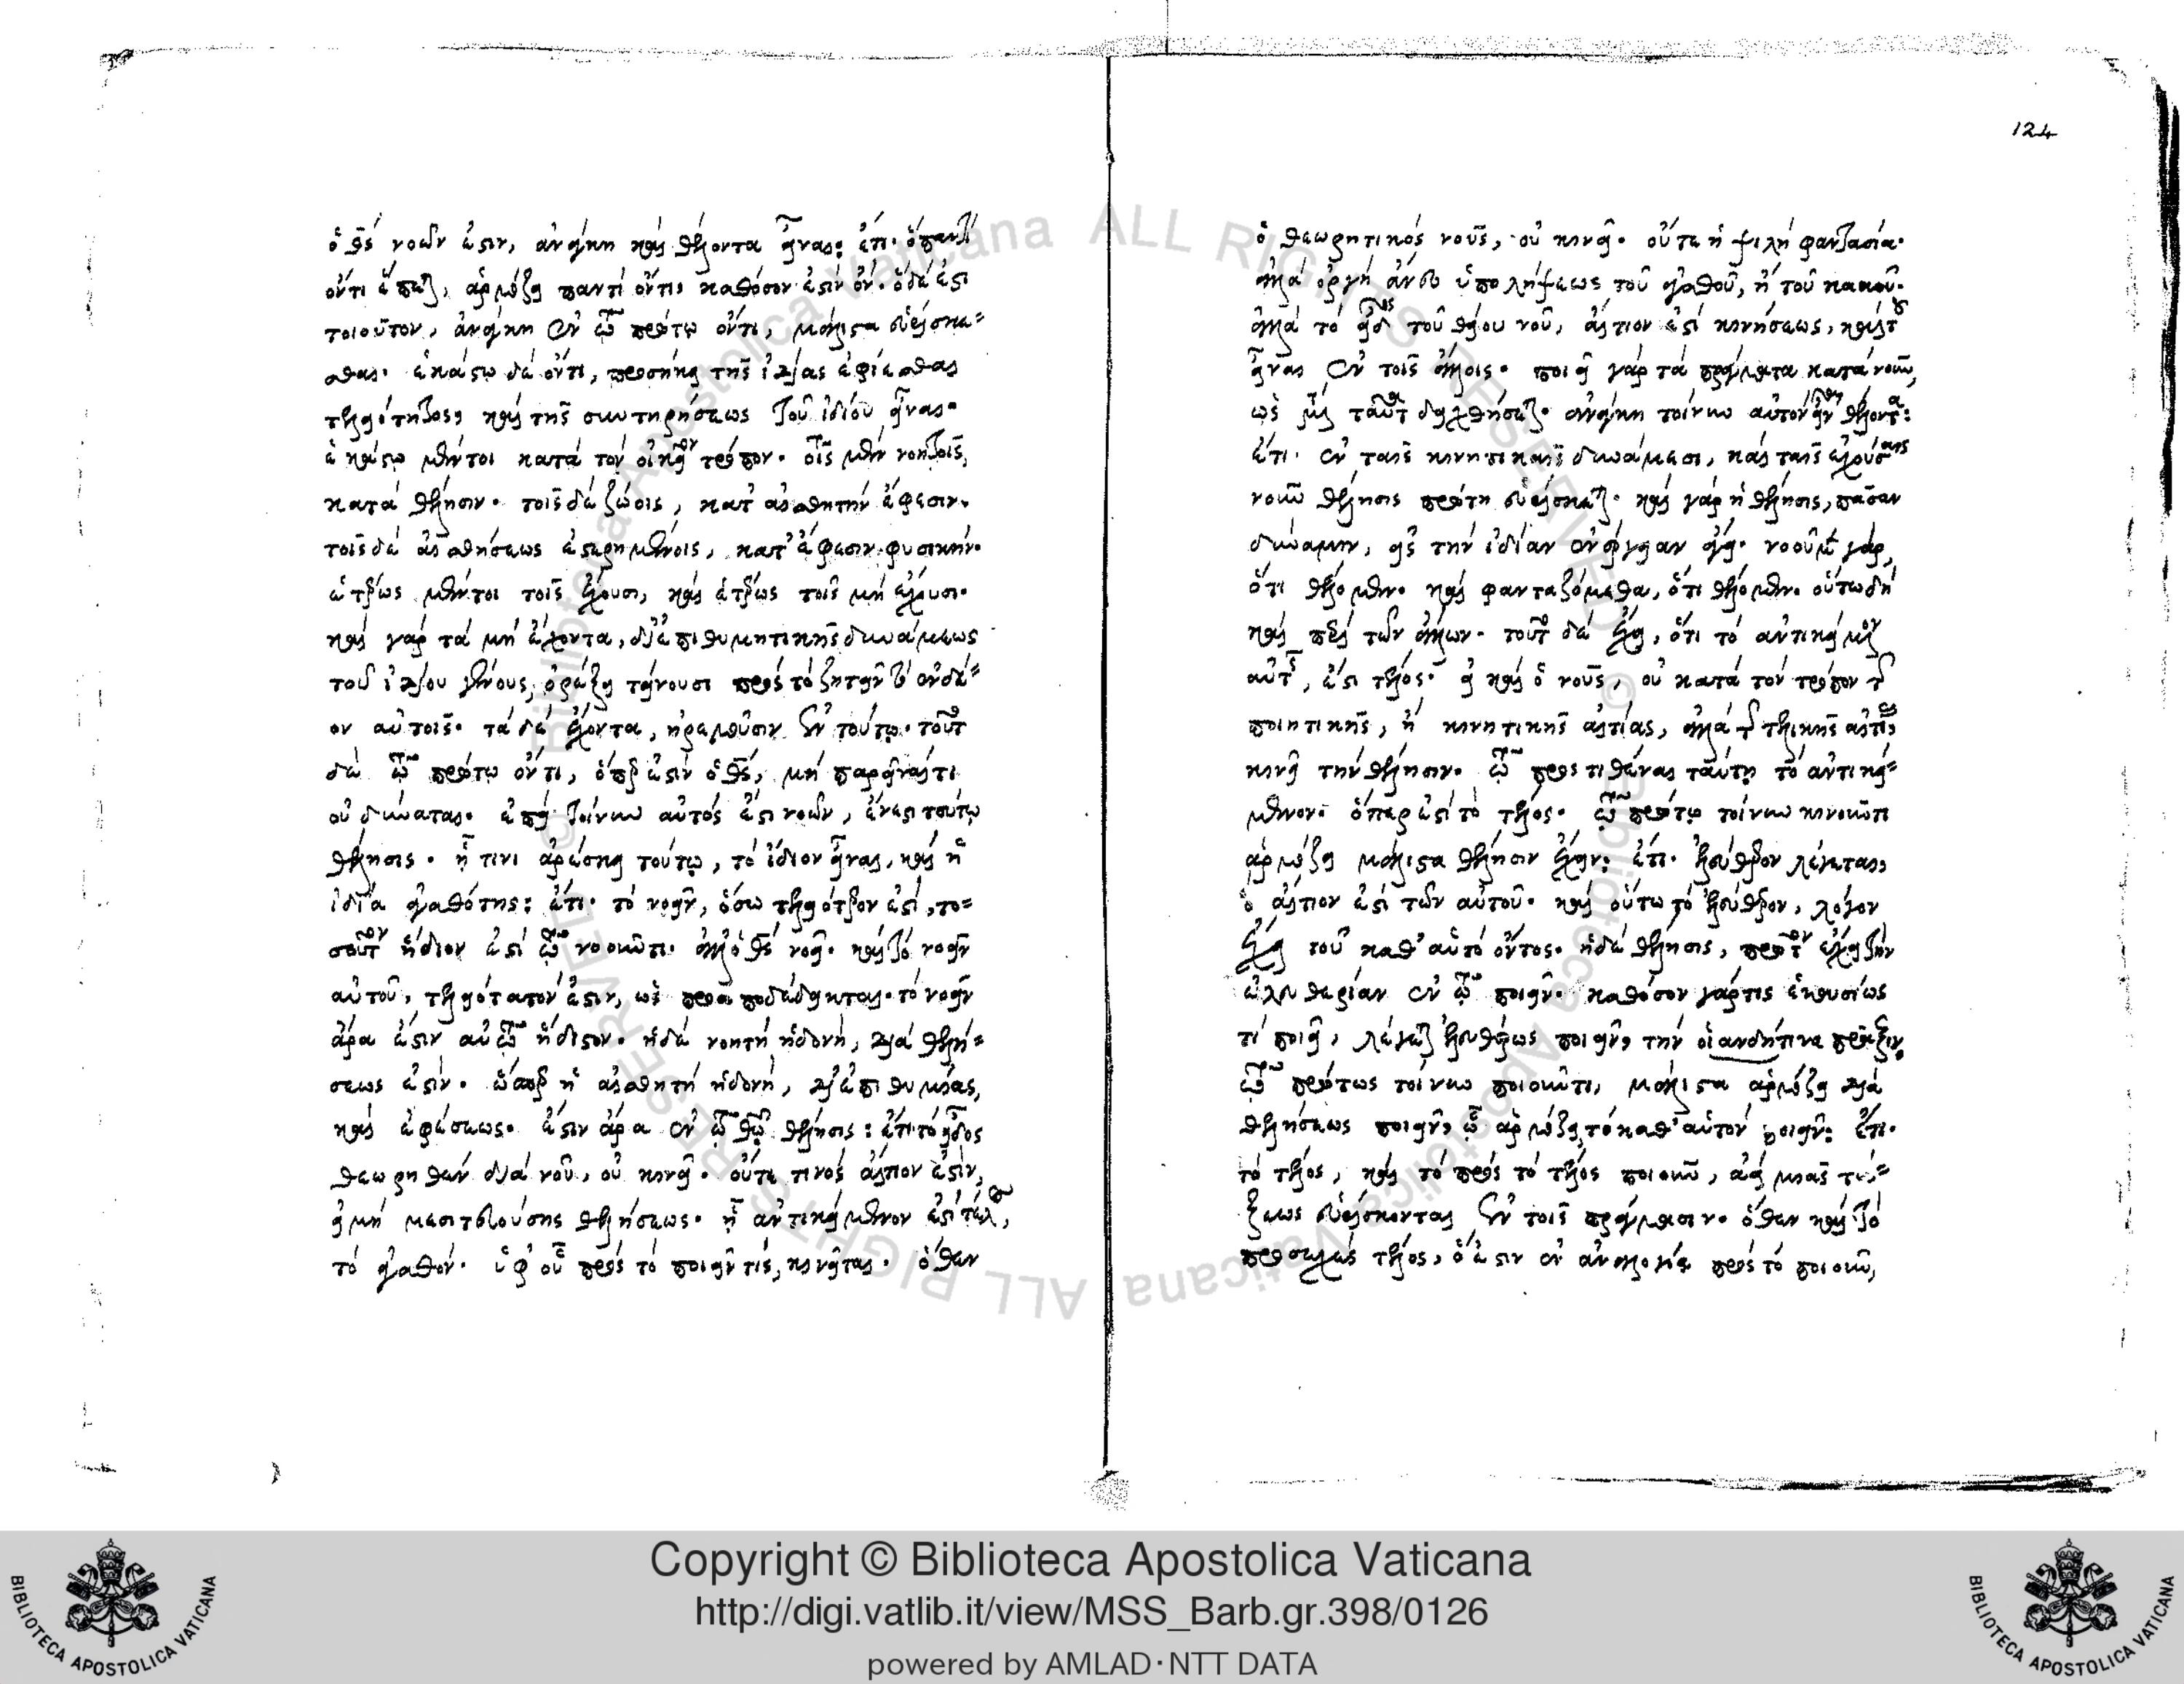 ὁ θεὸς νοῶν ἐστιν, ἀνάγκη καὶ θέλοντα εἶναι: ἔτι. ὃ παντὶ
ὄντι ἕπεται, ἁρμόζει παντὶ ὄντι, καθόσον ἐστὶν ὄν. ὃ δέ ἐστι
τοιοῦτον, ἀνάγκη ἐν τῷ πρώτῳ ὄντι, μάλιστα εὑρίσκε=
σθαι. ἑκάστῳ δὲ ὄντι, προσήκει τῆς ἰδίας ἐφίεσθαι
τελειότητος, καὶ τῆς συντηρήσεως τοῦ ἰδίου εἶναι.
ἑκάστῳ μέντοι κατὰ τὸν οἰκεῖον τρόπον. τοῖς μὲν νοητοῖς,
κατὰ θέλησιν. τοῖς δὲ ζώοις, κατ' αἰσθητὴν ἔφεσιν.
τοῖς δὲ αἰσθήσεως ἐστερημένοις, κατ' ἔφεσιν φυσικήν.
ἑτέρως μέντοι τοῖς ἔχουσι, καὶ ἑτέρως τοῖς μὴ ἔχουσι.
καὶ γὰρ τὰ μὴ ἔχοντα, δι' ἐπιθυμητικῆς δυνάμεως
τοῦ ἰδίου γένους, ὀρέξει τείνουσι πρὸς τὸ ζητεῖν τὸ ἐνδέ=
ον αὐτοῖς. τὰ δὲ ἔχοντα, ἠρεμοῦσιν ἐν τούτῳ. τοῦτο
δὲ τῷ πρώτῳ ὄντι, ὅπερ ἐστὶν ὁ θεός, μὴ παρεῖναί τι
οὐ δύναται. ἐπεὶ τοίνυν αὐτός ἐστι νοῶν, ἔνεστι τούτῳ
θέλησις. ᾗ τινι ἀρέσκει τούτῳ, τὸ ἴδιον εἶναι, καὶ ἡ
ἰδία ἀγαθότης: ἔτι. τὸ νοεῖν, ὅσῳ τελειότερόν ἐστι, το=
σοῦτον ἥδιόν ἐστι τῷ νοοῦντι. ἀλλ' ὁ θεὸς νοεῖ. καὶ τὸ νοεῖν
αὐτοῦ, τελειότατόν ἐστιν, ὡς προαποδέδεικται. τὸ νοεῖν
ἄρα ἐστὶν αὐτῷ ἥδιστον. ἡ δὲ νοητὴ ἡδονή, διὰ θελή=
σεως ἐστίν. ὥσπερ ἡ αἰσθητὴ ἡδονή, δι' ἐπιθυμίας,
καὶ ἐφέσεως. ἔστιν ἄρα ἐν τῷ θεῷ θέλησις: ἔτι τὸ εἶδος
θεωρηθὲν διὰ νοῦ, οὐ κινεῖ. οὔτε τινὸς αἴτιόν ἐστιν,
εἰ μὴ μεσιτευούσης θελήσεως. ἧς ἀντικείμενόν ἐστι τέλος,
τὸ ἀγαθόν. ὑφ' οὗ πρὸς τὸ ποιεῖν τις, κινεῖται. ὅθεν
124
ὁ θεωρητικὸς νοῦς, οὐ κινεῖ. οὔτε ἡ ψιλὴ φαντασία.
ἀλλὰ ὀργὴ ἄνευ ὑπολήψεως τοῦ ἀγαθοῦ, ἢ τοῦ κακοῦ.
ἀλλὰ τὸ εἶδος τοῦ θείου νοῦ, αἴτιόν ἐστι κινήσεως, καὶ τοῦ
εἶναι ἐν τοῖς ἄλλοις. ποιεῖ γὰρ τὰ πράγματα κατὰ νοῦν,
ὡς μετὰ ταῦτα δειχθήσεται. ἀνάγκη τοίνυν αὐτὸν εἶναι θέλοντα:
ἔτι. ἐν ταῖς κινητικαῖς δυνάμεσι, καὶ ταῖς ἐχούσαις
νοῦν θέλησις πρώτη εὑρίσκεται. καὶ γὰρ ἡ θέλησις, πᾶσαν
δύναμιν, εἰς τὴν ἰδίαν ἐνέργειαν ἄγει. νοοῦμεν γάρ,
ὅτι θέλομεν. καὶ φανταζόμεθα, ὅτι θέλομεν. οὕτω δὴ
καὶ περὶ τῶν ἄλλων. τοῦτο δὲ ἔχει, ὅτι τὸ ἀντικείμενον
αὐτῆς, ἐστὶ τέλος. εἰ καὶ ὁ νοῦς, οὐ κατὰ τὸν τρόπον τῆς
ποιητικῆς, ἢ κινητικῆς αἰτίας, ἀλλὰ τῆς τελικῆς αἰτίας
κινεῖ τὴν θέλησιν. τῷ προστιθέναι ταύτῃ τὸ ἀντικεί=
μενον. ὅπερ ἐστὶ τὸ τέλος. τῷ πρώτῳ τοίνυν κινοῦντι
ἁρμόζει μάλιστα θέλησιν ἔχειν: ἔτι. ἐλεύθερον λέγεται,
ὃ αἴτιόν ἐστι τῶν αὑτοῦ. καὶ οὕτω τὸ ἐλεύθερον, λόγον
ἔχει τοῦ καθ' αὑτὸ ὄντος. ἡ δὲ θέλησις, πρῶτον ἔχει τὴν
ἐλευθερίαν ἐν τῷ ποιεῖν. καθόσον γάρ τις ἑκουσίως
τι ποιεῖ, λέγεται ἐλευθέρως ποιεῖν, τὴν οἱανδήτινα πρᾶξιν.
τῷ πρώτως τοίνυν ποιοῦντι, μάλιστα ἁρμόζει διὰ
θελήσεως ποιεῖν, ᾧ ἁρμόζει τὸ καθ' αὑτὸν ποιεῖν: ἔτι.
τὸ τέλος, καὶ τὸ πρὸς τὸ τέλος ποιοῦν, ἀεὶ μιᾶς τά=
ξεως εὑρίσκονται ἐν τοῖς πράγμασιν. ὅθεν καὶ τὸ
προσεχὲς τέλος, ὅ ἐστιν ἐν ἀναλογίᾳ πρὸς τὸ ποιοῦν,
Copyright © Biblioteca Apostolica Vaticana
http://digi.vatlib.it/view/MSS_Barb.gr.398/0126
powered by AMLAD·NTT DATA
BIBLIOTECA APOSTOLICA VATICANA
BIBLIOTECA APOSTOLICA VATICANA